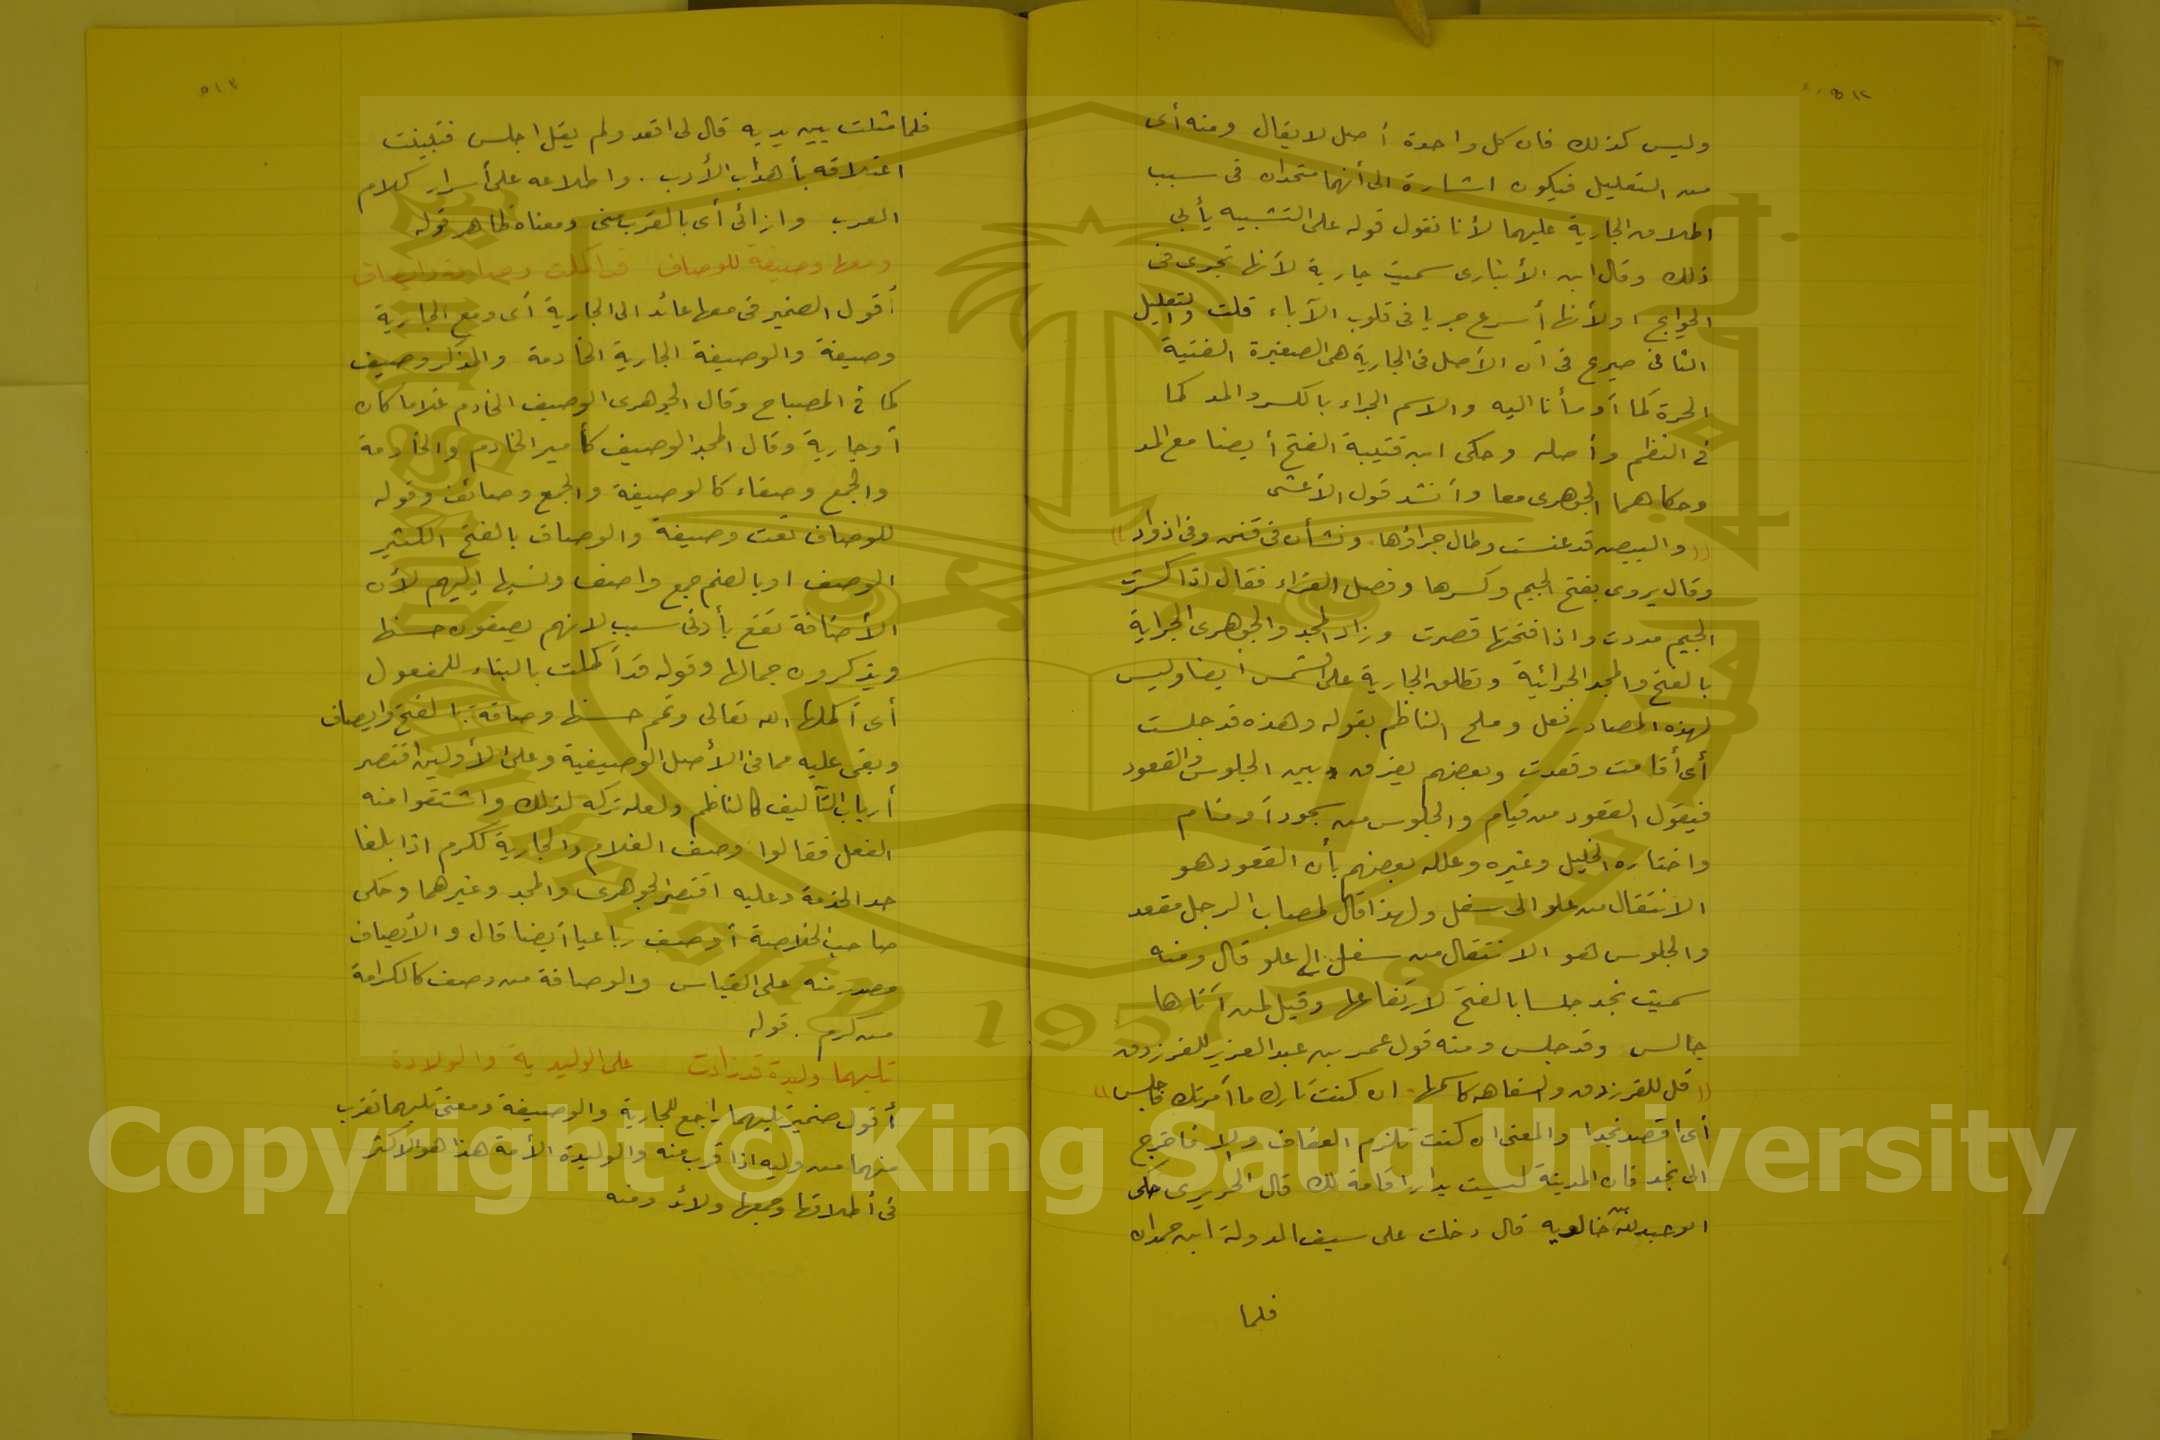 ٥١٢
وليس كذلك فان كل واحدة أصل لا يقال ومنه أى
من التعليل فيكون اشارة الى أنهما متحدان فى سبب
اطلاق الجارية عليهما لأنا نقول قوله على التشبيه يأبى
ذلك وقال ابن الأنبارى سميت جارية لأنها تجرى فى
الحوايج اولأنها أسرع جريا فى قلوب الآباء قلت والتعليل
الثانى صريح فى ان الأصل فى الجارية هى الصغيرة الفتية
الحرة كما أومأنا اليه والاسم الجراء بالكسر والمد كما
فى النظم وأصله وحكى ابن قتيبة الفتح أيضا مع المد
وحكاهما الجوهرى معا وأنشد قول الأعشى
((والبيض قد عنست وطال جراؤها . ونشأن فى قن وفى اذواد))
وقال يروى بفتح الجيم وكسرها وفصل الفراء فقال اذا كسرت
الجيم مددت واذا فتحتها قصرت وزاد المجد والجوهرى الجراية
بالفتح والمجد الجرائية وتطلق الجارية على الشمس أيضا وليس
لهذه المصادر فعل وملح الناظم بقوله وهذه قد جلست
أى أقامت وقعدت وبعضهم يفرق بين الجلوس والقعود
فيقول القعود من قيام والجلوس من سجود أو منام
واختاره الخليل وغيره وعلله بعضهم بأن القعود هو
الانتقال من علو الى سفل ولهذا قال لمصاب الرجل مقعد
والجلوس هو الانتقال من سفل الى علو قال ومنه
سميت نجد جلسا بالفتح لارتفاعها وقيل لمن أتاها
جالس وقد جلس ومنه قول عمر بن عبد العزيز للفرزدق
((قل للفرزدق والسفاهه كاسمها . ان كنت تارك ما أمرتك فاجلس))
أى اقصد نجدا والمعنى ان كنت تلزم العفاف والا فاخرج
الى نجد فان المدينة ليست بدار اقامة لك قال الحريرى حكى
ابو عبد الله خالويه قال دخلت على سيف الدولة ابن حمدان
فلما
٥١٣
فلما مثلت بين يديه قال لى اقعد ولم يقل اجلس فتبينت
اعتلاقه بأهداب الأدب . واطلاعه على أسرار كلام
العرب وازائى أى بالقرب منى ومعناه ظاهر قوله
ومعها وصيفة للوصاف قد أكملت وصافة وايصاف
أقول الضمير فى معها عائد الى الجارية أى ومع الجارية
وصيفة والوصيفة الجارية الخادمة والمذكر وصيف
كما فى المصباح وقال الجوهرى الوصيف الخادم غلاما كان
أو جارية وقال المجد الوصيف كأمير الخادم والخادمة
والجمع وصفاء كالوصيفة والجمع وصائف وقوله
للوصاف نعت وصيفة والوصاف بالفتح الكثير
الوصف او بالضم جمع واصف ونسبها اليهم لأن
الأضافة تقع بأدنى سبب لانهم يصفون حسنها
ويذكرون جمالها وقوله قد أكملت بالبناء للمفعول
أى أكملها الله تعالى وتمم حسنها وصافة بالفتح وايصاف
وبقى عليه مما فى الأصل الوصيفية وعلى الأولين اقتصر
أرباب التآليف كالناظم ولعله تركه لذلك واشتقوا منه
الفعل فقالوا وصف الغلام والجارية ككرم اذا بلغا
حد الخدمة وعليه اقتصر الجوهرى والمجد وغيرهما وحكى
صاحب الخلاصة أوصف رباعيا أيضا قال والأيصاف
مصدر منه على القياس والوصافة من وصف كالكرامة
من كرم . قوله
تليهما وليدة قد زادت على الوليدية والولادة
أقول ضمير تليهما راجع للجارية والوصيفة ومعنى تليهما تقرب
منهما من وليه اذا قرب منه والوليدة الأمة هذا هو الاكثر
فى أطلاقها وجمعها ولائد ومنه
1957
Copyright © King Saud University